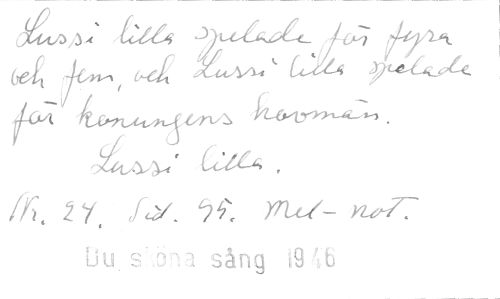 Lussi lilla spelade för fyra
och fem, och Lussi lilla spelade
för konungens hovmän.
Lussi lilla.
Nr. 24. Sid. 95. Mel-not.
Du sköna sång 1946